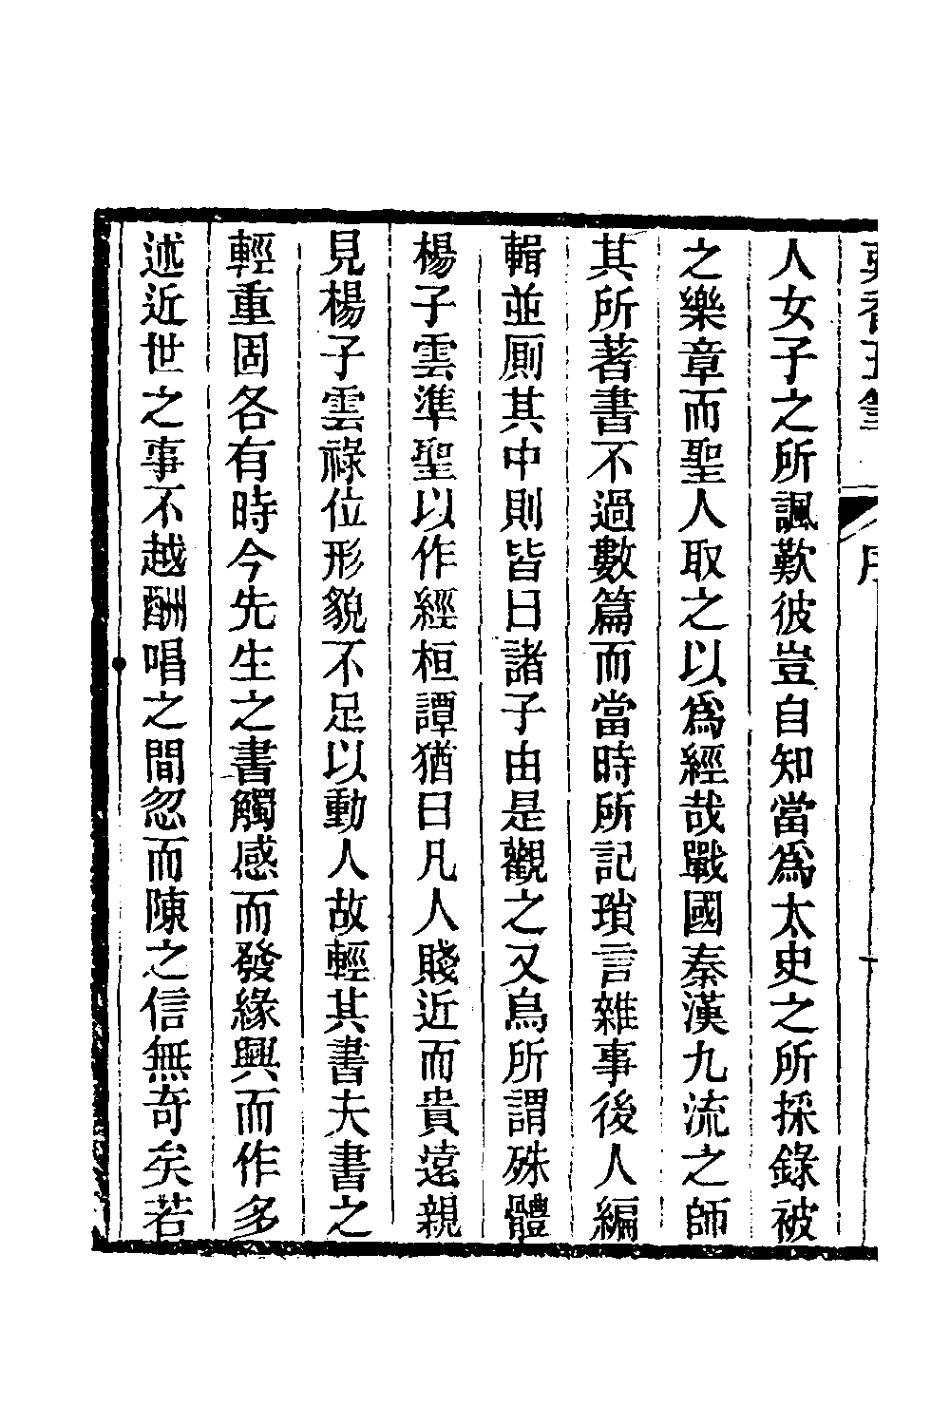 序
人女子之所諷歎彼豈自知當爲太史之所採錄被
之樂章而聖人取之以爲經哉戰國秦漢九流之師
其所著書不過數篇而當時所記瑣言雜事後人編
輯並厠其中則皆曰諸子由是觀之又烏所謂殊體
楊子雲準聖以作經桓譚猶曰凡人賤近而貴遠親
見楊子雲祿位形貌不足以動人故輕其書夫書之
輕重固各有時今先生之書觸感而發緣興而作多
述近世之事不越酬唱之間忽而陳之信無奇矣若